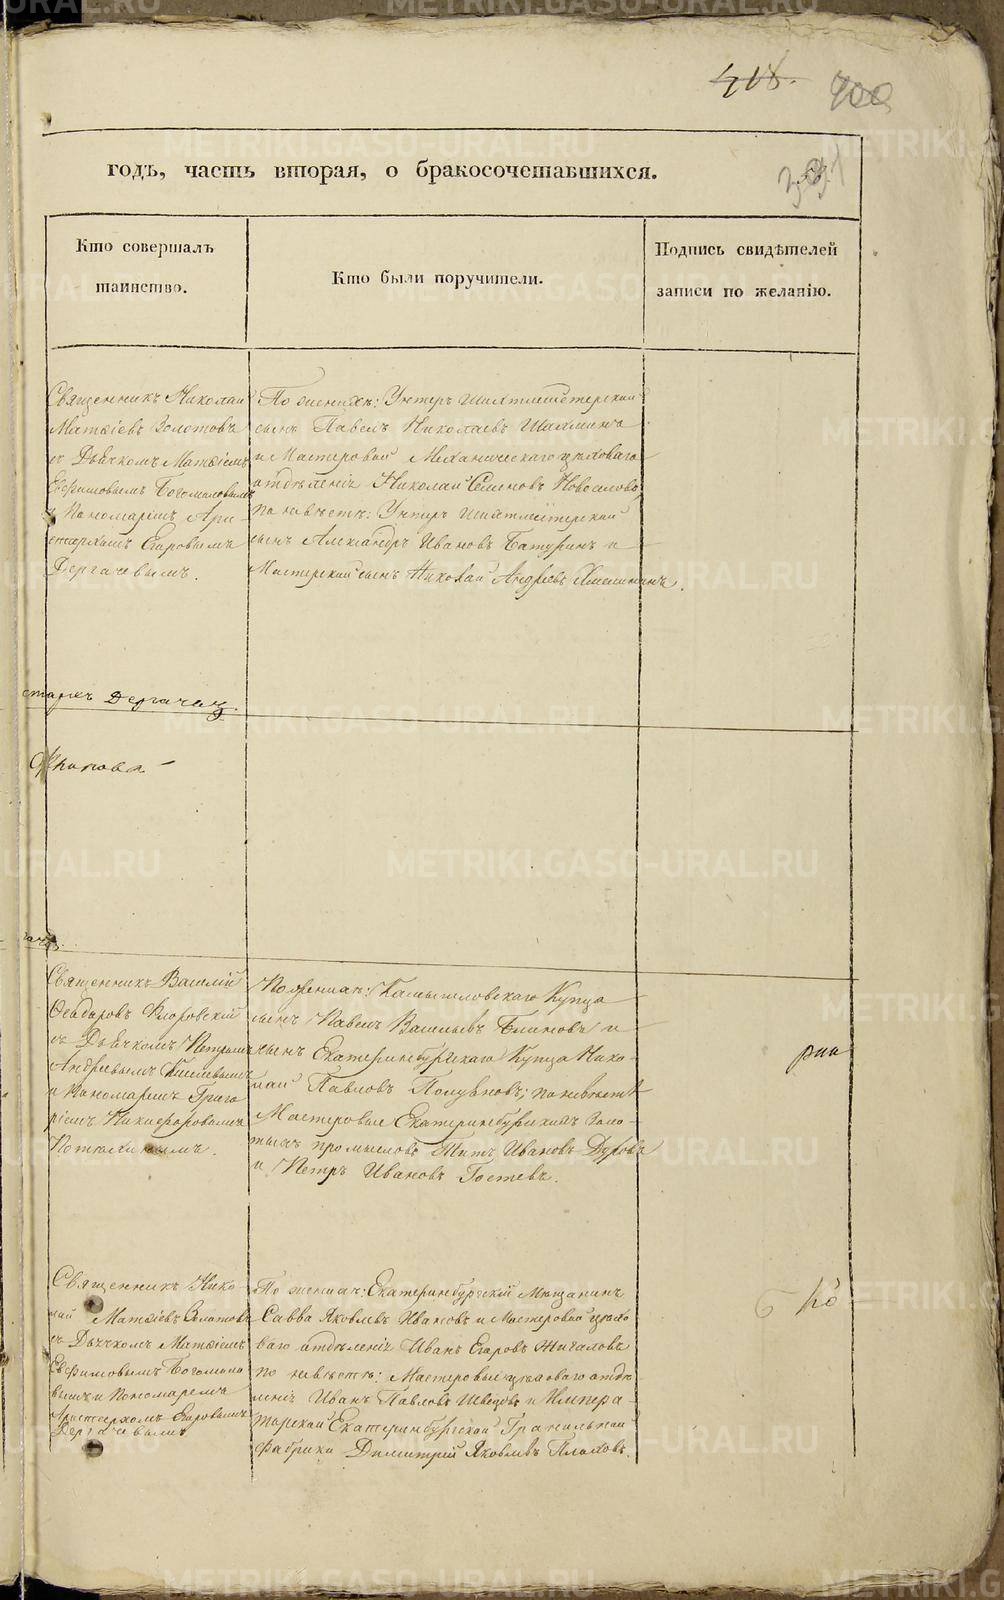 418.
400
годъ, часть вторая, о бракосочетавшихся.
Кто совершалъ
таинство.
Кто были поручители.
Подпись свидѣтелей
записи по желанію.
Священникъ Николай
Матѳіевъ Золотовъ
съ Дьячкомъ Матѳіемъ
Евфимовымъ Богомоловымъ
и Пономаремъ Ари-
стархомъ Егоровымъ
Дергачевымъ.
По женихѣ: Унтеръ Шихтмейстерскій
сынъ Павелъ Николаевъ
и Мастеровой Механическаго цеховаго
отдѣленія Николай Семеновъ Новоселовъ
по невѣстѣ: Унтеръ Шихтмейстерской
сынъ Александръ Ивановъ Батуринъ и
Мастерской сынъ Николай Андреевъ
Священникъ Василій
Ѳеодоровъ Флоровскій
съ Дьячкомъ Петромъ
Андреевымъ Киселевымъ
и Пономаремъ Григо
ріемъ Никифоровымъ
По женихѣ: Камышловскаго Купца
сынъ Павелъ Васильевъ Блиновъ и
сынъ Екатеринбургскаго Купца Нико-
лай Павловъ Полуяновъ; по невѣстѣ
Мастеровые Екатеринбургскихъ Золо-
тыхъ промысловъ Титъ Ивановъ Дуровъ
и Петръ Ивановъ Гостевъ.
Священникъ Нико-
лай Матѳіевъ Золотовъ
съ Дьячкомъ Матѳіемъ
Евфимовымъ Богомоло
вымъ и Пономаремъ
Аристархомъ Егоровымъ
Дергачевымъ
По женихѣ: Екатеринбургскій Мѣщанинъ
Савва Яковлевъ Ивановъ и Мастеровой цехо
ваго отдѣленія Иванъ Егоровъ Жигаловъ
по невѣстѣ: Мастеровые цеховаго отдѣ
ленія Иванъ Павловъ Шведовъ и Импера
торской Екатеринбургской Гранильной
фабрики Димитрій Яковлевъ Плоховъ.
METRIKI.GASO-URAL.RU